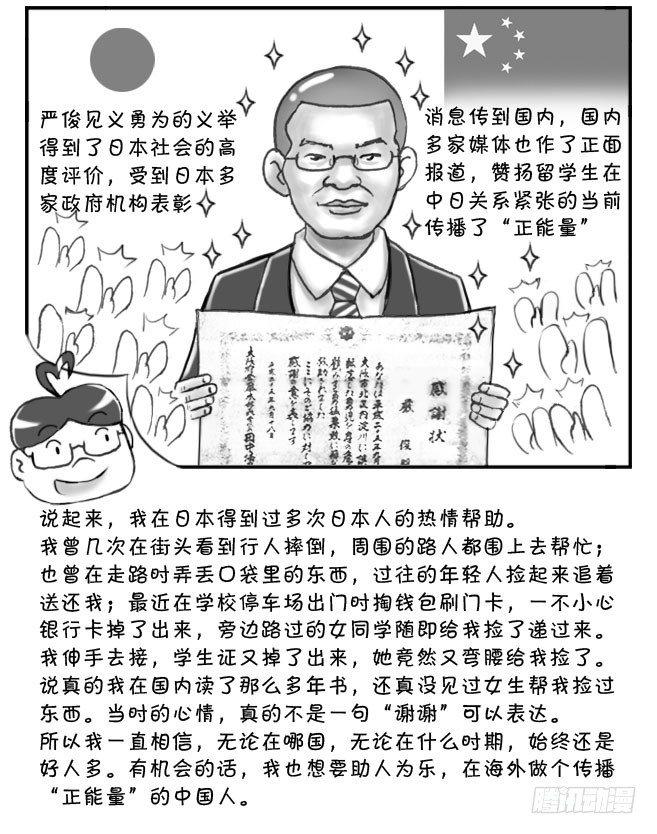 严俊见义勇为的义举
得到了日本社会的高
度评价，受到日本多
家政府机构表彰
消息传到国内，国内
多家媒体也作了正面
报道，赞扬留学生在
中日关系紧张的当前
传播了“正能量”
感謝状
厳俊
説起来，我在日本得到过多次日本人的热情帮助。
我曾几次在街头看到行人摔倒，周围的路人都围上去帮忙；
也曾在走路时弄丢口袋里的东西，过往的年轻人捡起来追着
送还我；最近在学校停车场出门时掏钱包刷门卡，一不小心
银行卡掉了出来，旁边路过的女同学随即给我捡了递过来。
我伸手去接，学生证又掉了出来，她竟然又弯腰给我捡了。
说真的我在国内读了那么多年书，还真没见过女生帮我捡过
东西。当时的心情，真的不是一句“谢谢”可以表达。
所以我一直相信，无论在哪国，无论在什么时期，始终还是
好人多。有机会的话，我也想要助人为乐，在海外做个传播
“正能量”的中国人。
腾讯动漫